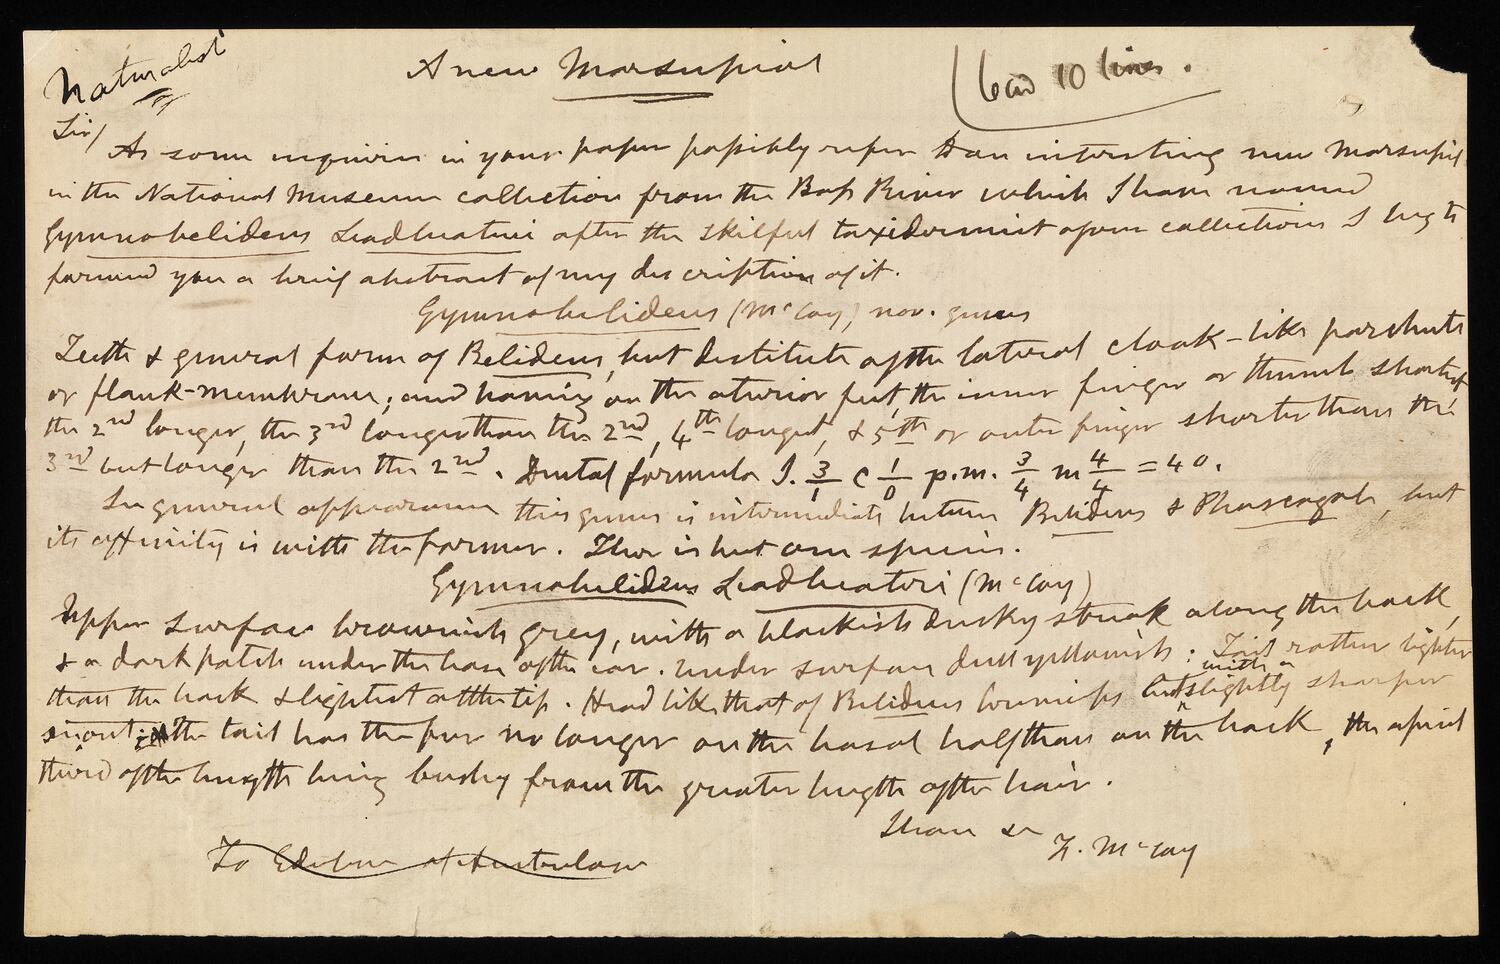 Naturalist
A new Marsupial
10 lines.
Sir/
As some inquiries in your paper possibly refer to an interesting new Marsupial
in the National Museum collection from the Bass River which I have named
Gymnobelideus Leadbeateri after the skilful taxidermist of our collections I beg to
forward you a brief abstract of my description of it.
Gymnobelideus (McCoy) nov. genus
Teeth & general form of Belideus, but destitute of the lateral cloak-like parachute
or flank-membrane; and having on the aterior feet, the inner finger or thumb shortest
the 2nd longer, the 3rd longer than the 2nd, 4th longest, & 5th or outer finger shorter than the
3rd but longer than the 2nd. Dental formula I. 3/1 c 1/0 p.m. 3/4 m 4/4 = 40.
In general appearance this genus is intermediate between Belideus & Phascogale, but
its affinity is with the former. There is but one species.
Gymnobelideus Leadbeateri (McCoy)
Upper surface brownish grey, with a blackish dusky streak along the back,
& a dark patch under the base of the ear. Under surface dull yellowish: Tail rather lighter
than the back & lightest at the tip. Head like that of Belideus breviceps but with a slightly sharper
snout; the tail has the fur no longer on the basal half than on the back, the apical
third of the length being bushy from the greater length of the hair.
I have &c
F. McCoy
To Editor of Australasian